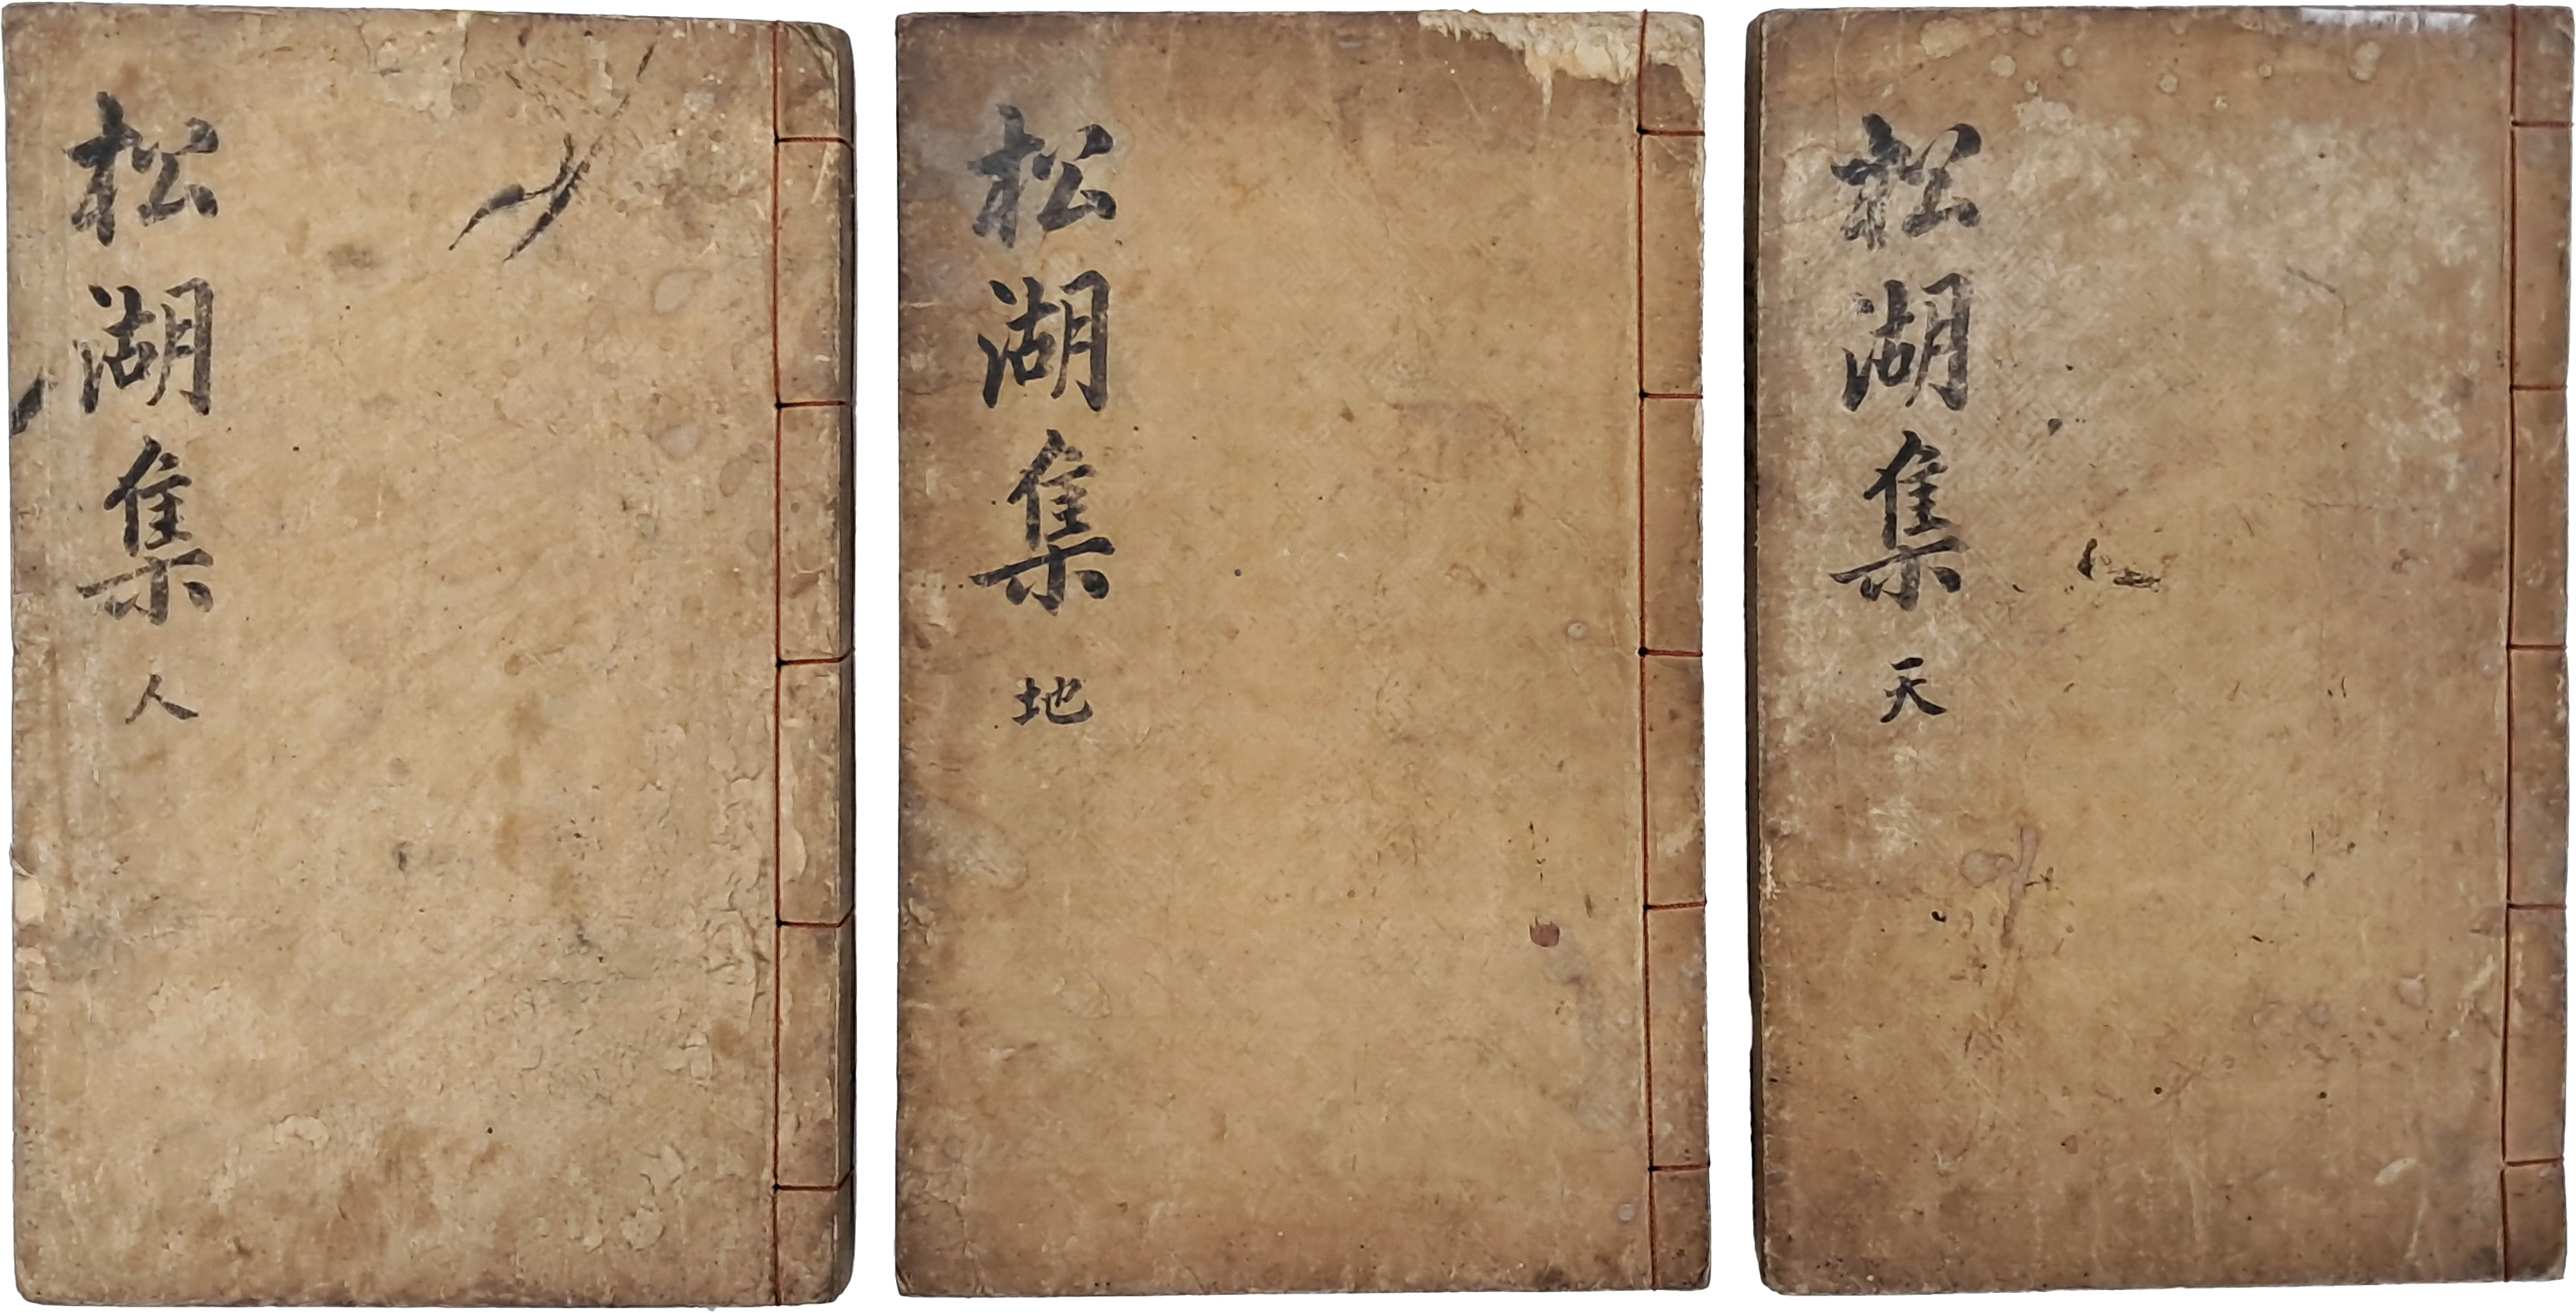 松湖集 天
松湖集 地
松湖集 人